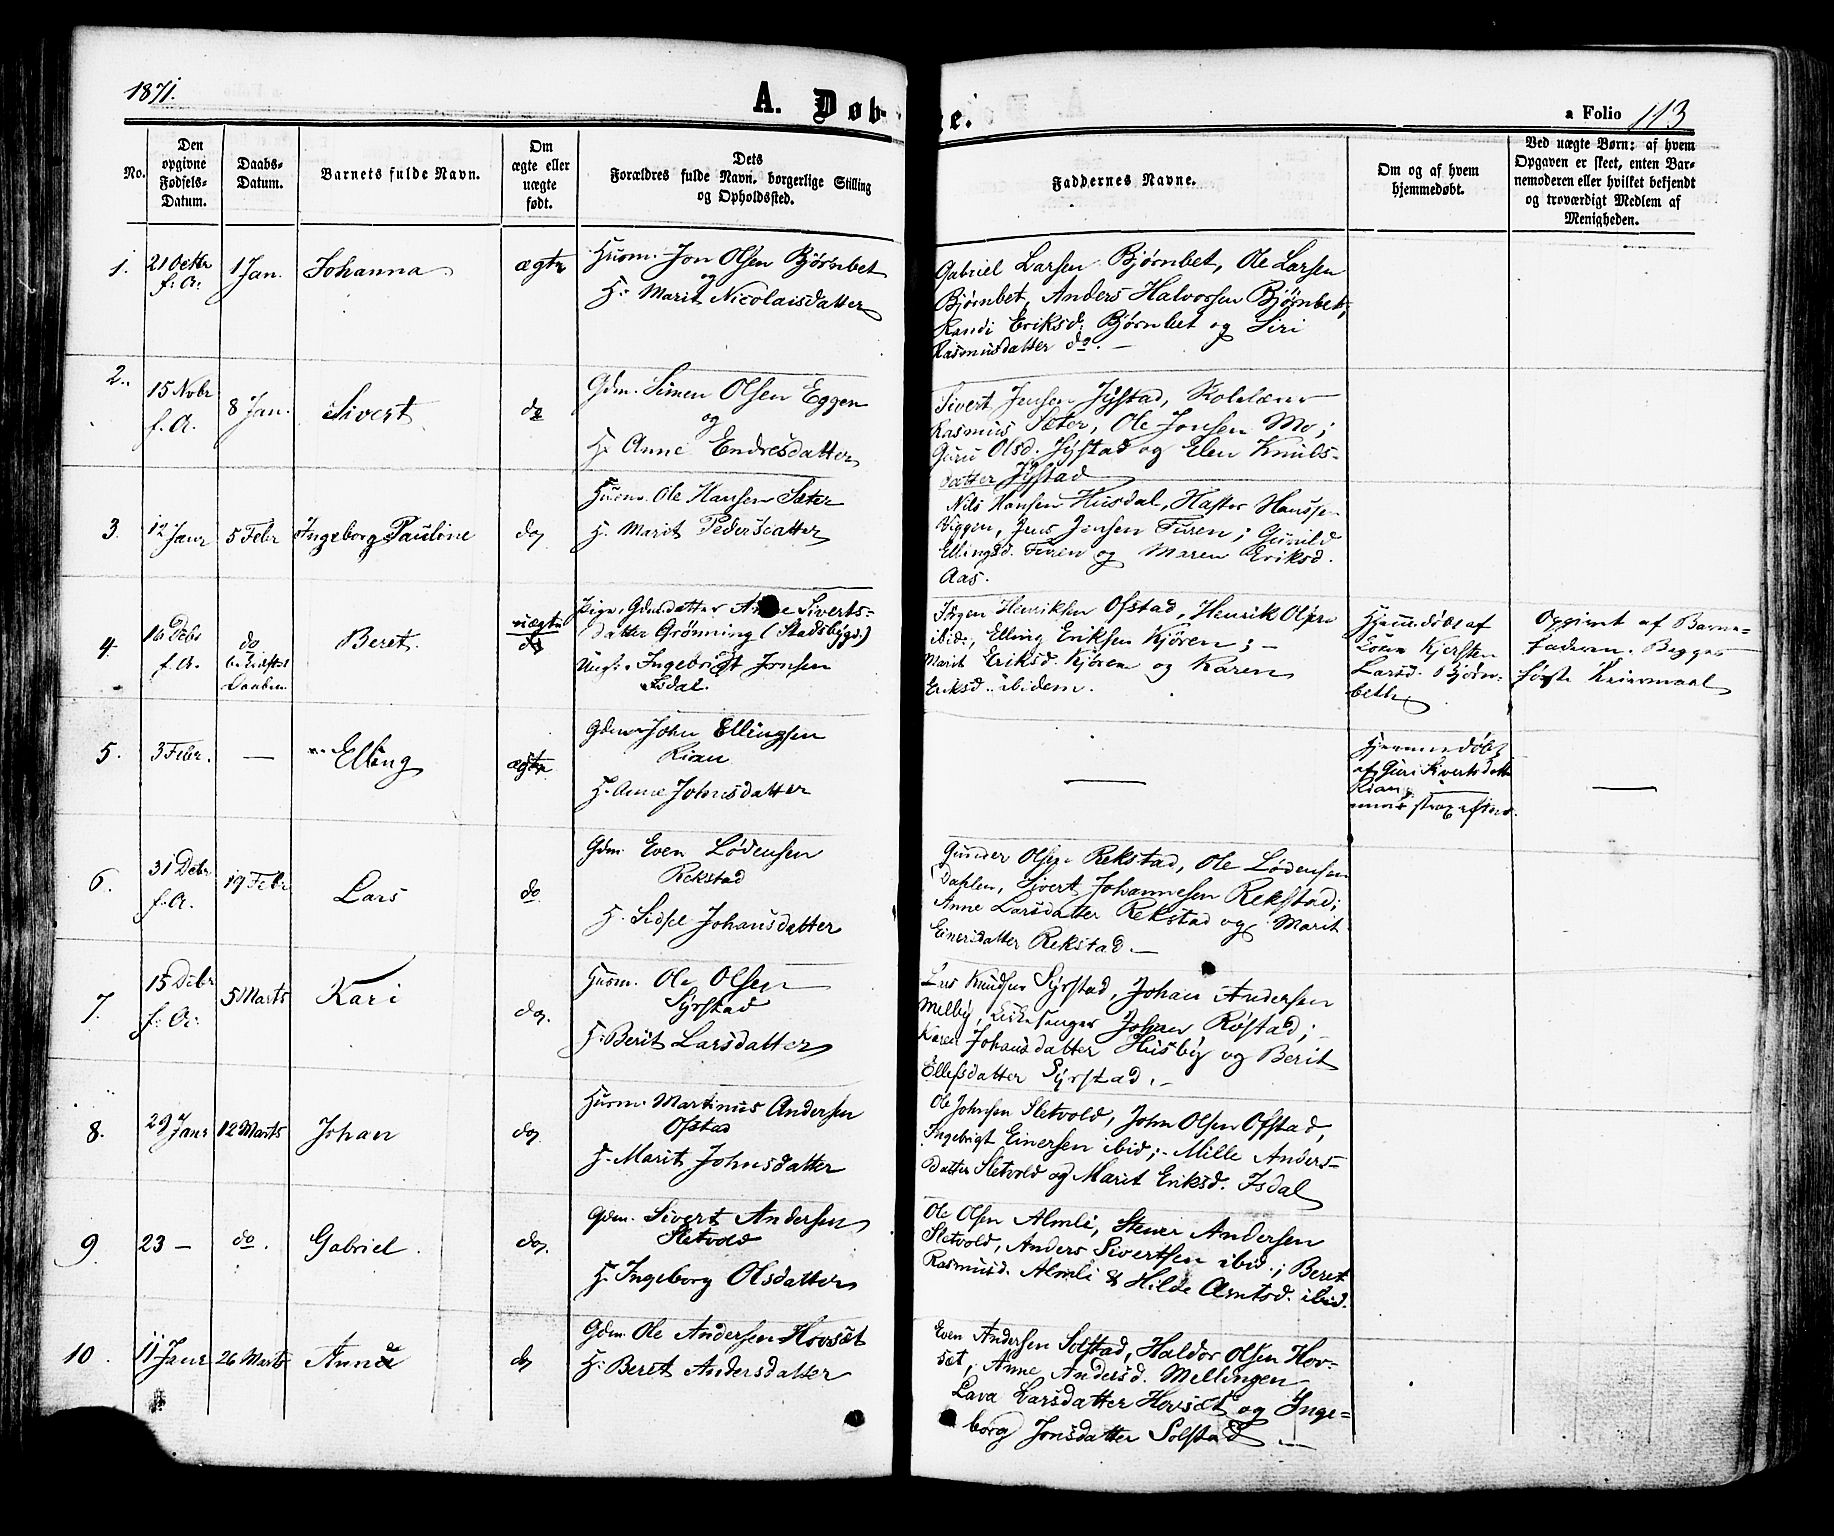 1871.
A. Døb- e.
a Folio 113
No.
Den opgivne Fødsels-Datum.
Daabs-Datum.
Barnets fulde Navn.
Om ægte eller uægte født.
Dets Forældres fulde Navn, borgerlige Stilling og Opholdssted.
Faddernes Navne.
Om og af hvem hjemmedøbt.
Ved uægte Børn: af hvem Opgaven er skeet, enten Barnemoderen eller hvilket bekjendt og troværdigt Medlem af Menigheden.
1.
21 Octbr
f. A.
1 Jan.
Johanna
ægte
Husm. Jon Olsen Bjørnbet
og
H. Marit Nicolaisdatter
Gabriel Larsen Bjørnbet, Ole Larsen
Bjørnbet, Anders Halvorsen Bjørnbet,
Randi Eriksd. Bjørnbet og Siri
Rasmusdatter do. —
2.
15 Novbr
f. A.
8 Jan.
Sivert
do
Gdm. Simen Olsen Eggen
og
H. Anne Endresdatter
Sivert Jensen Jystad, Skolelærer
Rasmus Sæter, Ole Jonsen Mo;
Guru Olsd. Jystad og Elen Knuds-
datter Jystad
3.
12 Janr
5 Febr
Ingeborg Pauline
do
Husm. Ole Hansen Sæter
H. Marit Pedersdatter
Nils Hansen Husdal, Hans
Viggen, Jens Jensen Furen; Gunild
Ellingsd. Furen og Maren Eriksd.
Aas.
4.
16 Debr
f. A.
do
Daaben
Beret.
uægte
do
Pige, Gdmdatter Anne Siverts-
datter Grønning (Stadsbygd.)
Ungk. Ingebrigt Jonsen
Isdal.
Jørgen Henriksen Ofstad, Henrik Olsen
ibid:, Elling Eriksen Kjøren; —
Marit Eriksd. Kjøren og Karen
Eriksd. ibidem.
Hjemmedøbt af
Kjersten
Larsd. Bjørn-
bet
Opgivet af Barne-
faderen. Begges
første Leiermaal
5.
3 Febr.
—
Elling
ægte
Gdm John Ellingsen
Rian
H. Anne Johnsdatter
—
Hjemmedøbt
af Guri Sivertsdatt
Rian
—
6.
31 Debr
f. A.
19 Febr
Lars
do
Gdm. Even Lødensen
Rekstad
H. Sidsel Johansdatter
Gunder Olsen Rekstad, Ole Lødensen
Dahlen, Sivert Johannesen Rekstad;
Anne Larsdatter Rekstad og Marit
Einersdatter Rekstad. —
7.
15 Debr
f. A.
5 Marts
Kari
do.
Husm. Ole Olsen
Syrstad
H. Berit Larsdatter
Lars Knudsen Syrstad, Johan Andersen
Melby, Kirkesanger Johan Røstad; —
Karen Johansdatter Husby og Berit
Ellefsdatter Syrstad. —
8.
29 Janr
12 Marts
Johan
do
Husm. Martinus Andersen
Ofstad
H. Marit Johnsdatter
Ole Johnsen Sletvold, John Olsen Ofstad,
Ingebrigt Einersen ibid; Mille Anders-
datter Sletvold og Marit Eriksd. Isdal
9.
23 —
do.
Gabriel.
do.
Gdm. Sivert Andersen
Sletvold
H. Ingeborg Olsdatter
Ole Olsen Almli, Stener Andersen
Sletvold, Anders Sivertsen ibid.; Beret
Rasmusd. Almli & Hilde Arntsd. ibid.
10.
11 Janr
26 Marts
Anne
do
Gdm. Ole Andersen Hovsæt
H. Beret Andersdatter
Even Andersen Solstad, Haldor Olsen Hov-
sæt, Anne Andersd. Mellingen
Lava Larsdatter Hovsæt og Inge-
borg Jonsdatter Solstad. —